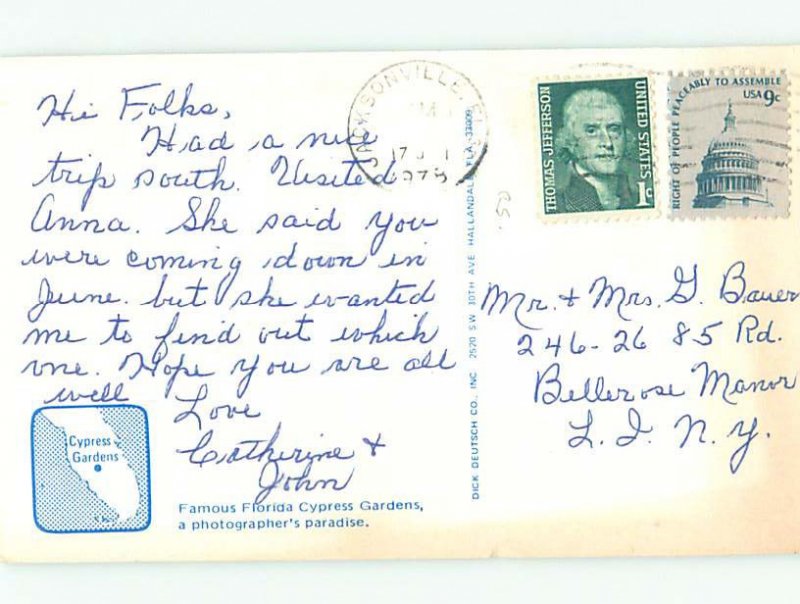 Hi Folks,
Had a nice
trip south. Visited
Anna. She said you
were coming down in
June. but she wanted
me to find out which
one. Hope you are all
well
Love
Catherine &
John
Cypress
Gardens
Famous Florida Cypress Gardens,
a photographer's paradise.
DICK DEUTSCH CO. INC 2520 S.W. 30TH AVE HALLANDALE, FLA. 33009
JACKSONVILLE, FL
THOMAS JEFFERSON
UNITED STATES
1c
RIGHT OF PEOPLE PEACEABLY TO ASSEMBLE
USA 9c
Mr. & Mrs. G. Bauer
246-26 85 Rd.
Bellerose Manor
L. I. N. Y.